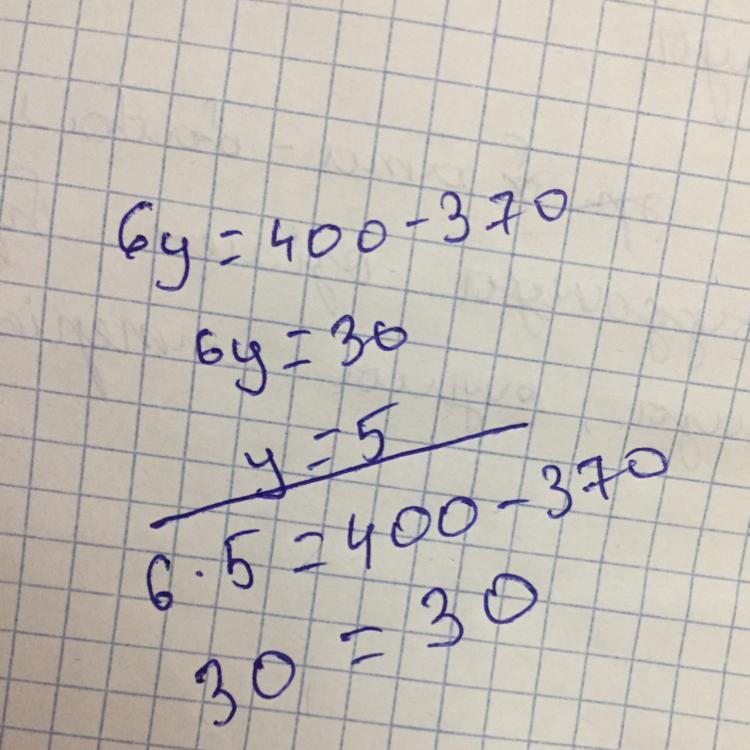 6y = 400 - 370
6y = 30
y = 5
6 · 5 = 400 - 370
30 = 30